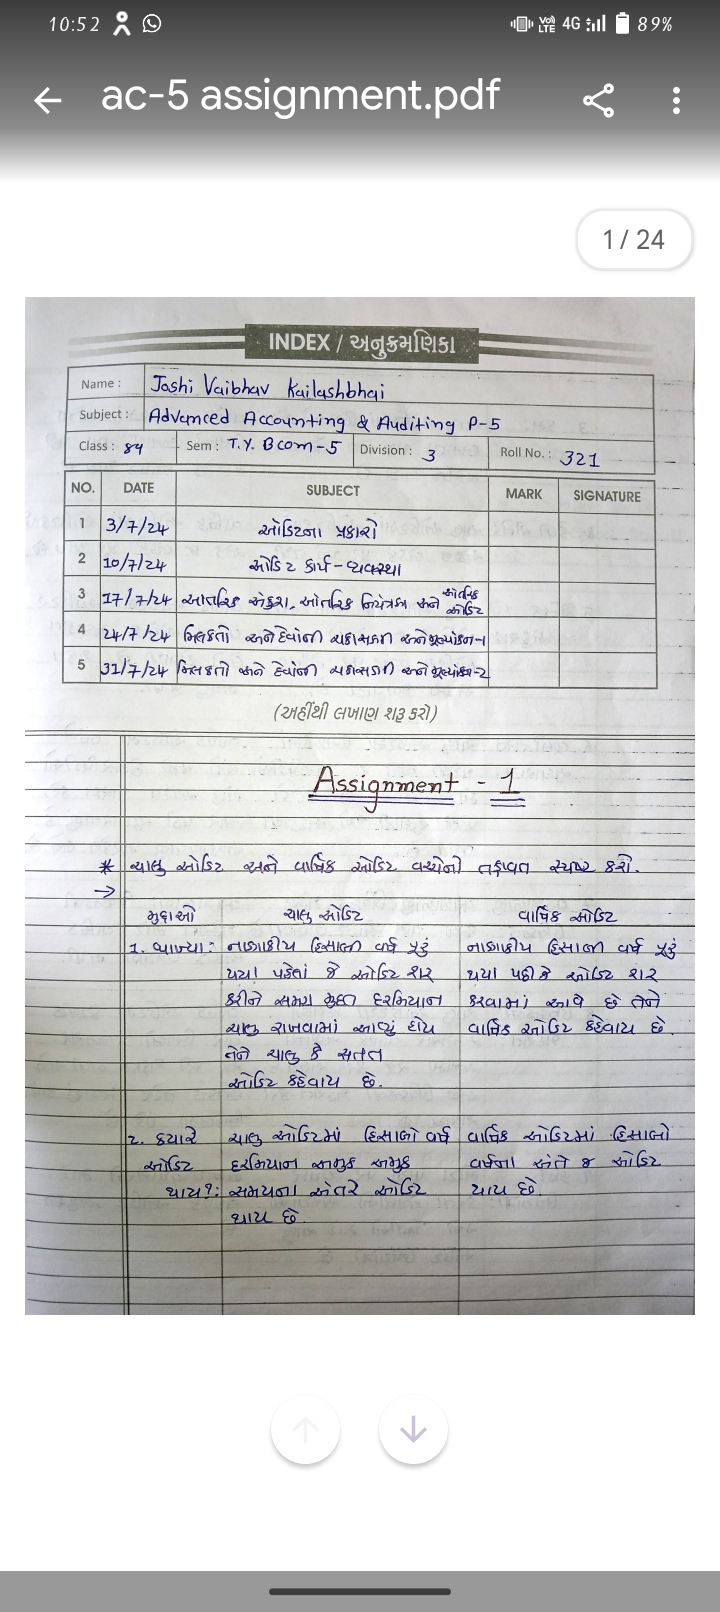 10:52 VoLTE 4G 89%
ac-5 assignment.pdf
1 / 24
INDEX / અનુક્રમણિકા
Name : Joshi Vaibhav Kailashbhai
Subject : Advanced Accounting & Auditing P-5
Class : 84 Sem : T.Y. Bcom-5 Division : 3 Roll No. : 321
NO. DATE SUBJECT MARK SIGNATURE
1 3/7/24 ઓડિટના પ્રકારો
2 10/7/24 ઓડિટ કાર્ય-વ્યવસ્થા
3 17/7/24 આંતરિક અંકુશ, આંતરિક નિયંત્રણ અને આંતરિક ઓડિટ
4 24/7/24 મિલકતો અને દેવાંની ચકાસણી અને મૂલ્યાંકન-1
5 31/7/24 મિલકતો અને દેવાંની ચકાસણી અને મૂલ્યાંકન-2
(અહીંથી લખાણ શરૂ કરો)
Assignment - 1
* ચાલુ ઓડિટ અને વાર્ષિક ઓડિટ વચ્ચેનો તફાવત સ્પષ્ટ કરો.
→
મુદ્દાઓ ચાલુ ઓડિટ વાર્ષિક ઓડિટ
1. વ્યાખ્યા: નાણાકીય હિસાબી વર્ષ પૂરું નાણાકીય હિસાબી વર્ષ પૂરું
થયા પહેલાં જે ઓડિટ શરૂ થયા પછી જે ઓડિટ શરૂ
કરીને સમગ્ર મુદ્દત દરમિયાન કરવામાં આવે છે તેને
ચાલુ રાખવામાં આવ્યું હોય વાર્ષિક ઓડિટ કહેવાય છે.
તેને ચાલુ કે સતત
ઓડિટ કહેવાય છે.
2. ક્યારે ચાલુ ઓડિટમાં હિસાબો વર્ષ વાર્ષિક ઓડિટમાં હિસાબો
ઓડિટ દરમિયાન અમુક અમુક વર્ષના અંતે જ ઓડિટ
થાય?: સમયના અંતરે ઓડિટ થાય છે.
થાય છે.